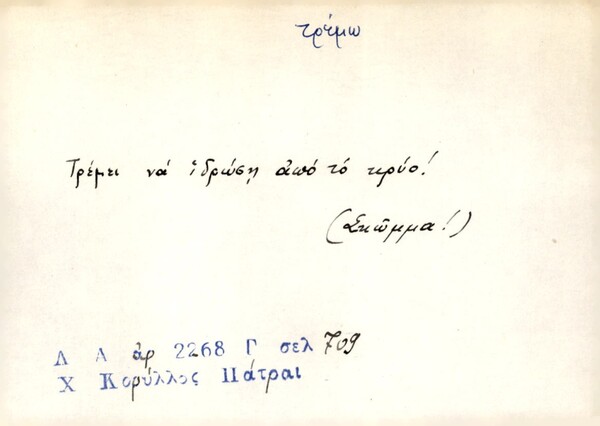 τρέμω
Τρέμει νά ἱδρώσῃ ἀπό τό κρύο!
(Σκῶμμα!)
Λ Α ἀρ 2268 Γ σελ 709
Χ Κορύλλος Πάτραι